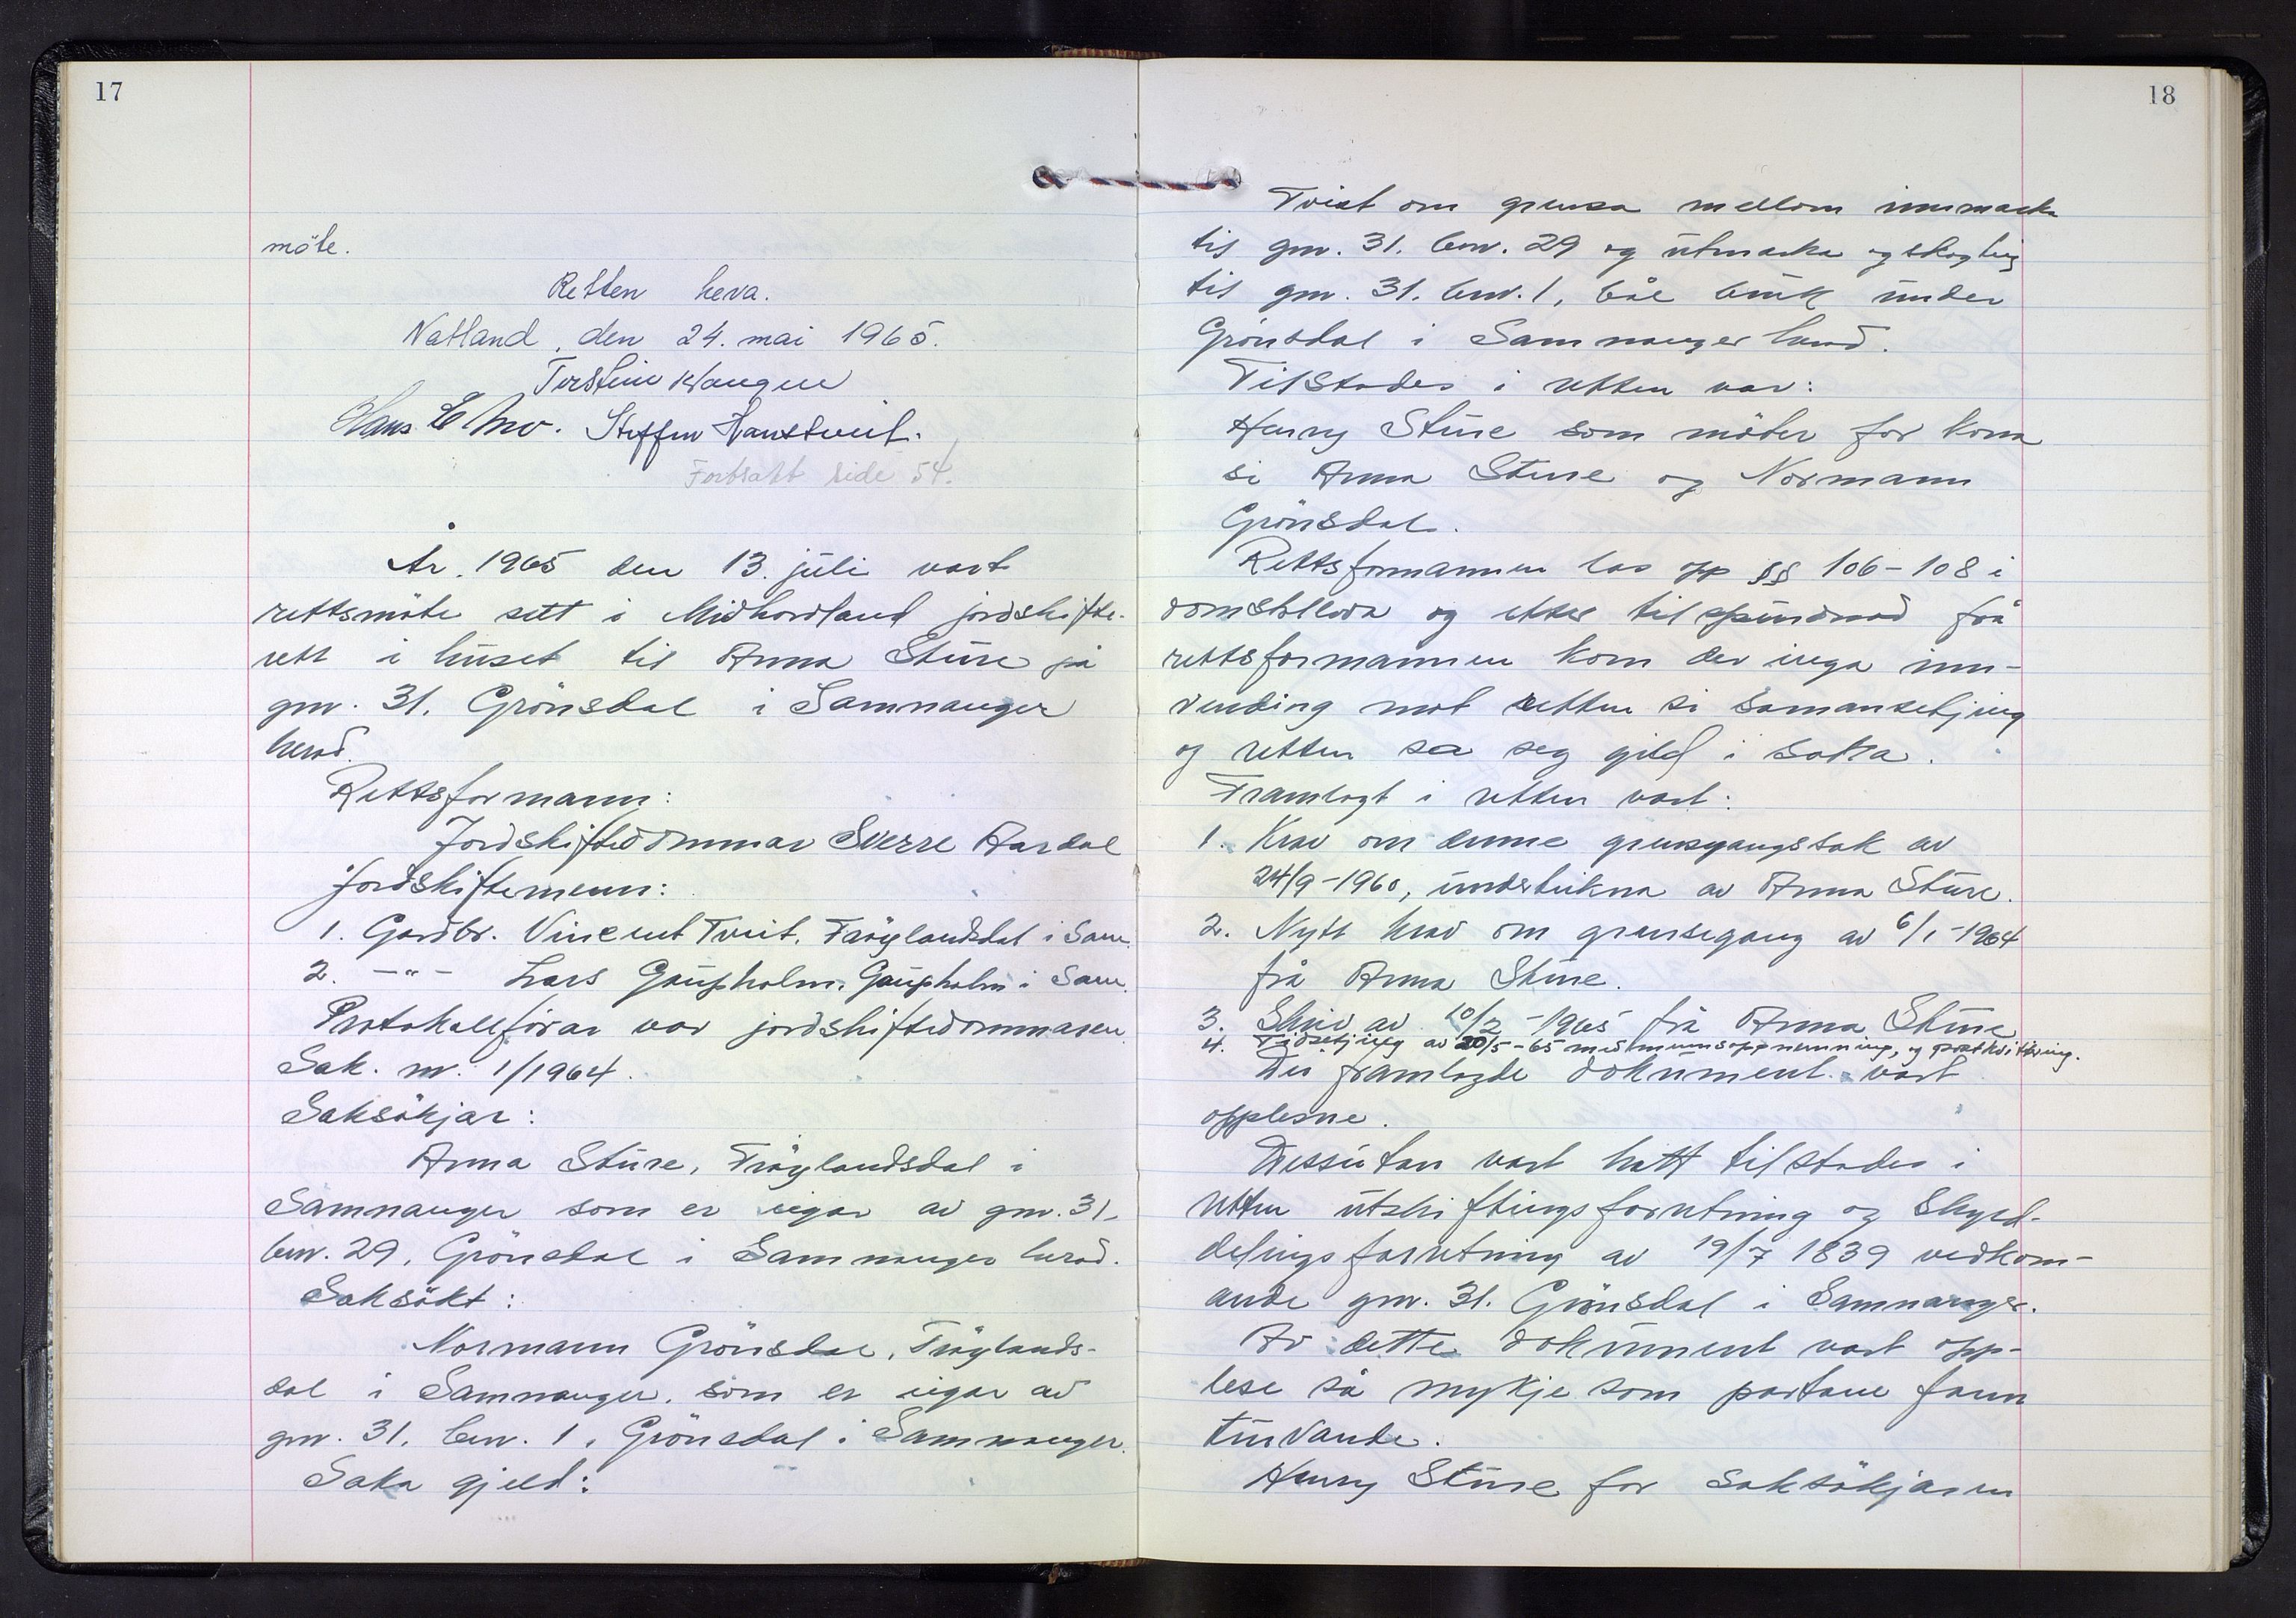 17
möte.
Retten heva.
Natland, den 24. mai 1965.
Torstein Haugen
Hans E Mo. Steffen Haustveit.
Fortsatt side 54.
År 1965 den 13. juli vart
rettsmöte sett i Midhordland jordskifte-
rett i huset til Anna Sture på
gnr. 31. Grönsdal i Samnanger
herad.
Rettsformann:
Jordskiftedommar Sverre Aardal
Jordskiftemenn:
1. Gardbr. Vincent Tveit. Tröglandsdal i Sam.
2. -"- Lars Gaupholm. Gaupholm i Sam.
Protokollförar var jordskiftedommaren
Sak. nr. 1/1964.
Saksökjar:
Anna Sture, Tröglandsdal i
Samnanger som er eigar av gnr. 31,
bnr. 29, Grönsdal i Samnanger herad.
Saksökt:
Normann Grönsdal, Tröglands-
dal i Samnanger, som er eigar av
gnr. 31. bnr. 1, Grönsdal i Samnanger.
Saka gjeld:
18
Tvist om grensa mellom innmarka
til gnr. 31. bnr. 29 og utmarka og skogteig
til gnr. 31. bnr. 1, båe bruk under
Grönsdal i Samnanger herad.
Tilstades i retten var:
Henry Sture som möter for kona
si Anna Sture og Normann
Grönsdal.
Rettsformannen las opp §§ 106-108 i
domstollova og etter tilspurnad frå
rettsformannen kom der inga inn-
vending mot retten si samansetjing
og retten sa seg gild i saka.
Framlagt i retten vart:
1. Krav om denne grensegangssak av
24/9-1960, underteikna av Anna Sture.
2. Nytt krav om grensegang av 6/1-1964
frå Anna Sture.
3. Skriv av 10/2-1965 frå Anna Sture
4. Tidsetjing av 20/5-65 med mannsoppnemning, og postkvittering.
Dei framlagde dokument vart
opplesne.
Dessutan vart hatt tilstades i
retten utskiftingsforretning og skyld-
delingsforretning av 19/7 1839 vedkom-
ande gnr. 31. Grönsdal i Samnanger.
Av dette dokument vart opp-
lese så mykje som partane fann
turvande.
Henry Sture for saksökjaren